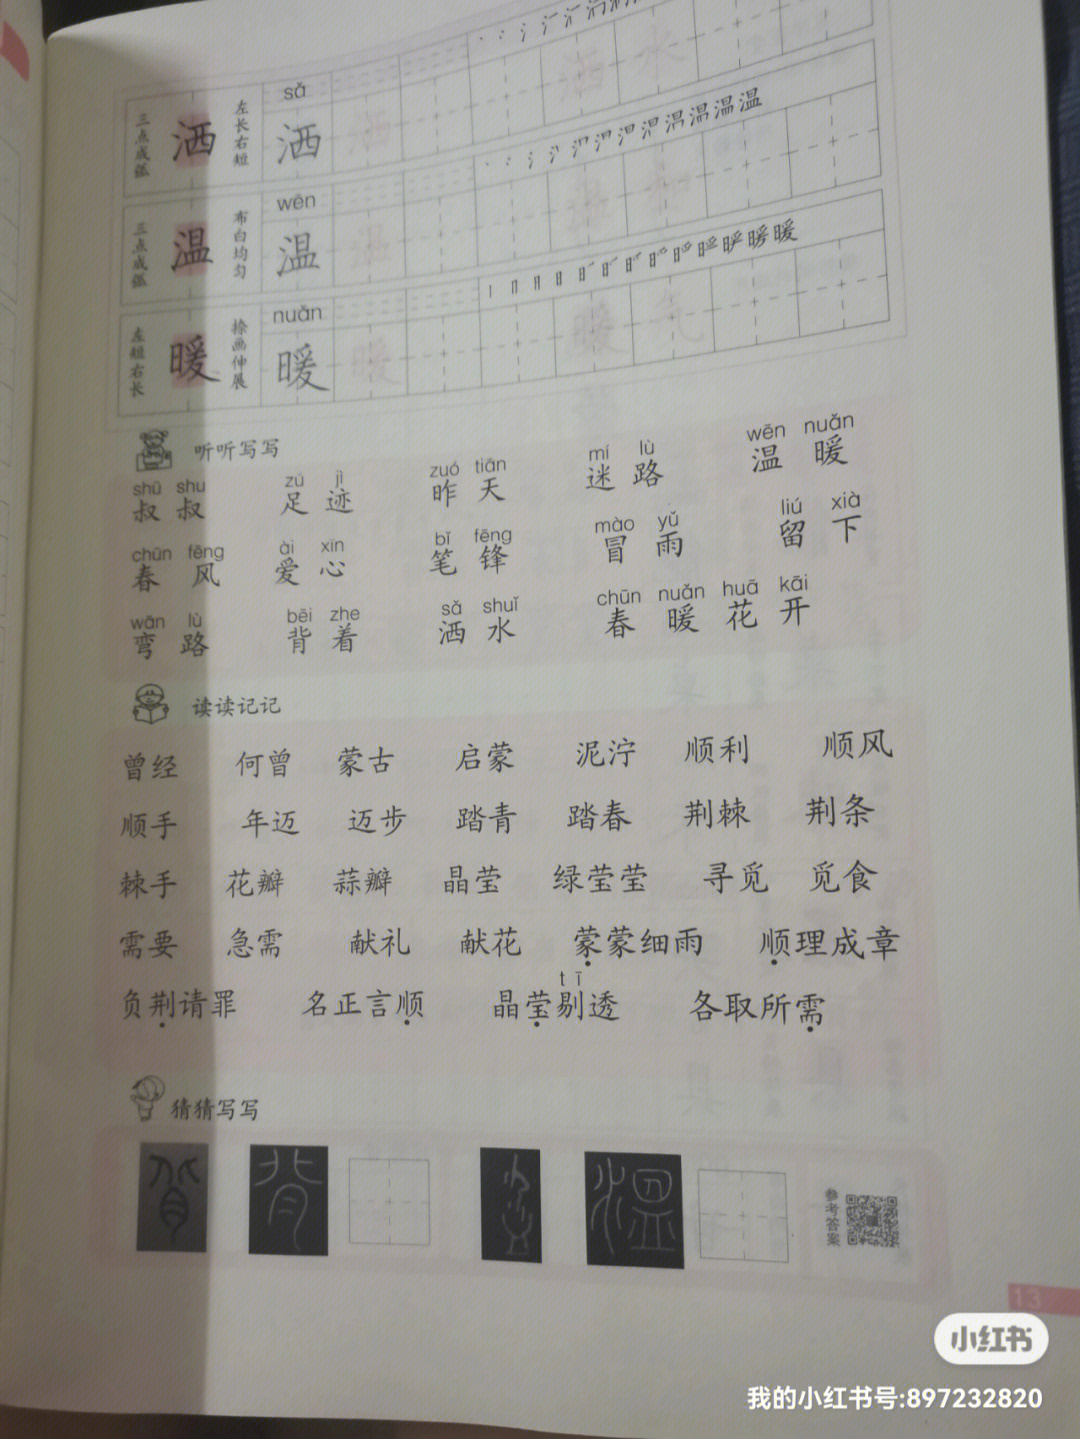 三点成弧 洒 左长右短 sǎ 洒 洒 洒水
三点成弧 温 布白均匀 wēn 温 温 温和
左短右长 暖 捺画伸展 nuǎn 暖 暖 暖气
听听写写
shū shu zú jì zuó tiān mí lù wēn nuǎn
叔叔 足迹 昨天 迷路 温暖
chūn fēng ài xīn bǐ fēng mào yǔ liú xià
春风 爱心 笔锋 冒雨 留下
wān lù bēi zhe sǎ shuǐ chūn nuǎn huā kāi
弯路 背着 洒水 春暖花开
读读记记
曾经 何曾 蒙古 启蒙 泥泞 顺利 顺风
顺手 年迈 迈步 踏青 踏春 荆棘 荆条
棘手 花瓣 蒜瓣 晶莹 绿莹莹 寻觅 觅食
需要 急需 献礼 献花 蒙蒙细雨 顺理成章
tī
负荆请罪 名正言顺 晶莹剔透 各取所需
猜猜写写
参考答案
13
小红书
我的小红书号:897232820